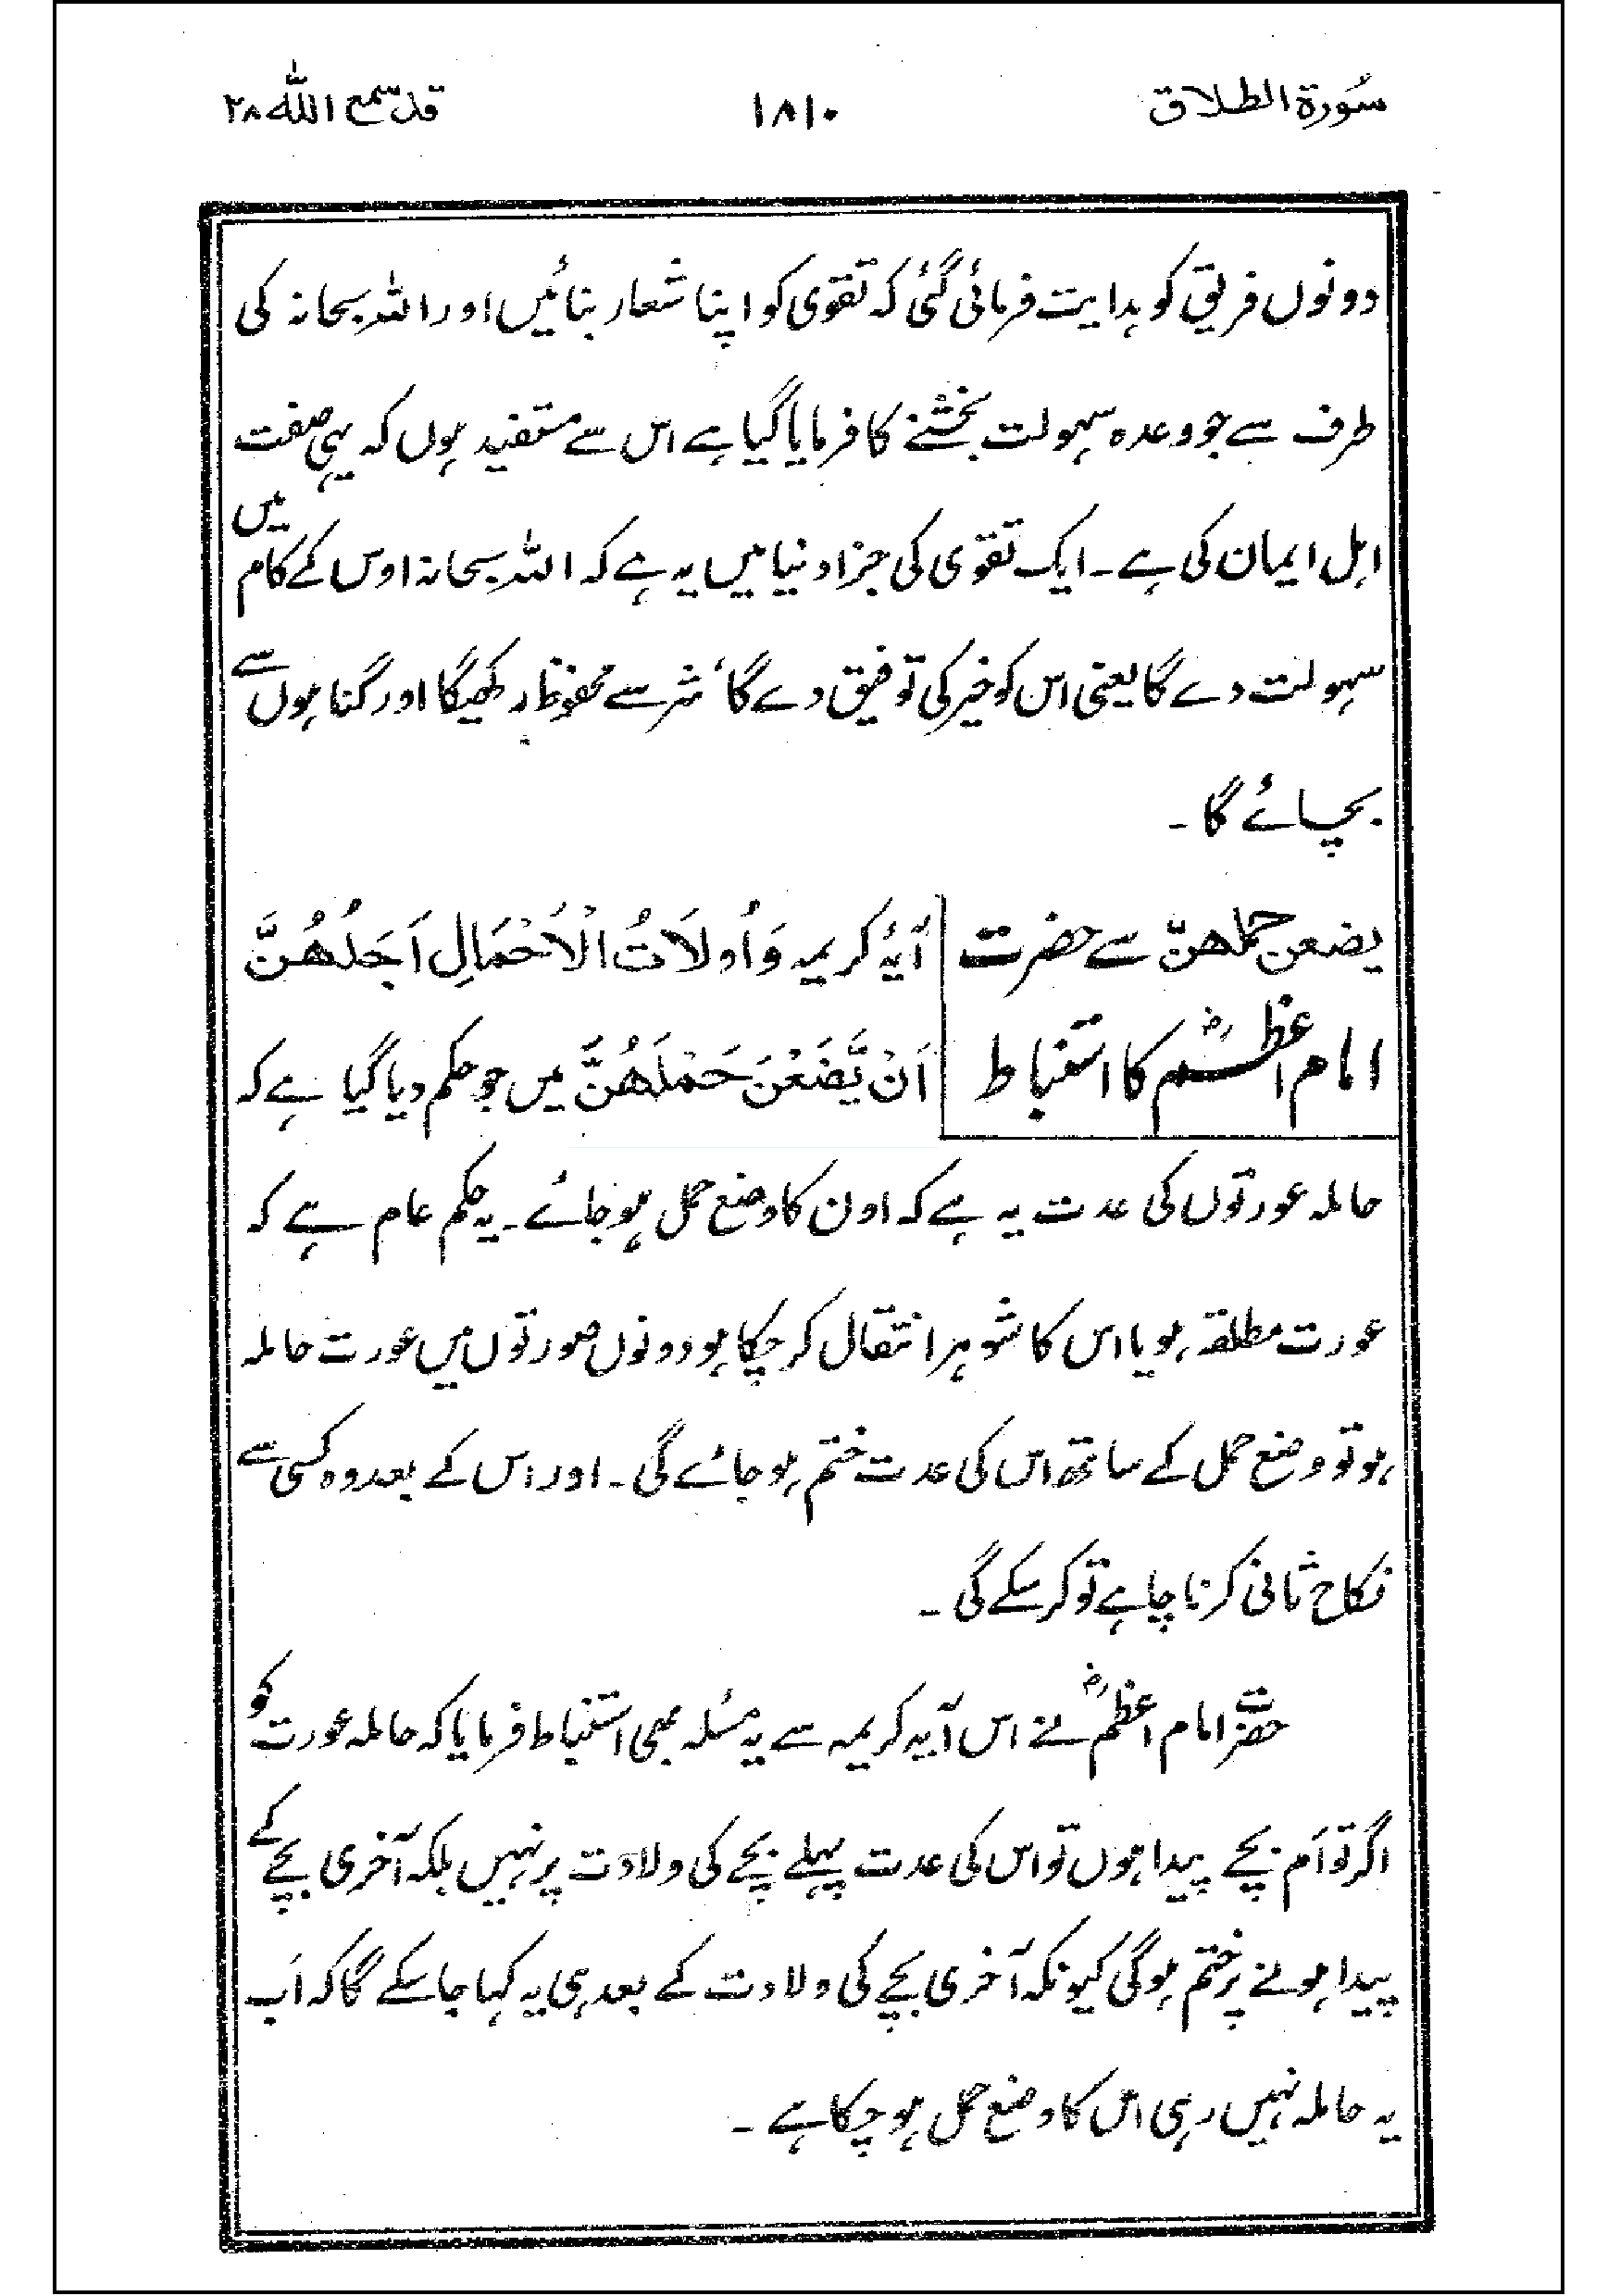 سُورة الطلاق ۱۸۱۰ قد سمع اللّٰه ۲۸
دونوں فریق کو ہدایت فرمائی گئی کہ تقوی کو اپنا شعار بنائیں اور اللہ سبحانہ کی
طرف سے جو وعدہ سہولت بخشنے کا فرمایا گیا ہے اس سے مستفید ہوں کہ یہی صفت
اہل ایمان کی ہے۔ ایک تقوی کی جزا دنیا میں یہ ہے کہ اللہ سبحانہ اوس کے کام میں
سہولت دے گا یعنی اس کو خیر کی توفیق دے گا، شر سے محفوظ رکھیگا اور گناہوں سے
بچائے گا۔
یضعن حملھنّ سے حضرت
امام اعظمؒ کا استنباط
آیۂ کریمہ وَاُولَاتُ الْاَحْمَالِ اَجَلُھُنَّ
اَنْ یَّضَعْنَ حَمْلَھُنَّ میں جو حکم دیا گیا ہے کہ
حاملہ عورتوں کی عدت یہ ہے کہ اون کا وضع حمل ہوجائے۔ یہ حکم عام ہے کہ
عورت مطلقہ ہو یا اس کا شوہر انتقال کرچکا ہو دونوں صورتوں میں عورت حاملہ
ہو تو وضع حمل کے ساتھ اس کی عدت ختم ہوجائے گی۔ اور اس کے بعد وہ کسی سے
نکاح ثانی کرنا چاہے تو کرسکے گی۔
حضرت امام اعظمؒ نے اس آیہ کریمہ سے یہ مسئلہ بھی استنباط فرمایا کہ حاملہ عورت کو
اگر توام بچے پیدا ہوں تو اس کی عدت پہلے بچے کی ولادت پر نہیں بلکہ آخری بچے کے
پیدا ہونے پر ختم ہوگی کیونکہ آخری بچے کی ولادت کے بعد ہی یہ کہا جاسکے گا کہ اَب
یہ حاملہ نہیں رہی اس کا وضع حمل ہوچکا ہے۔